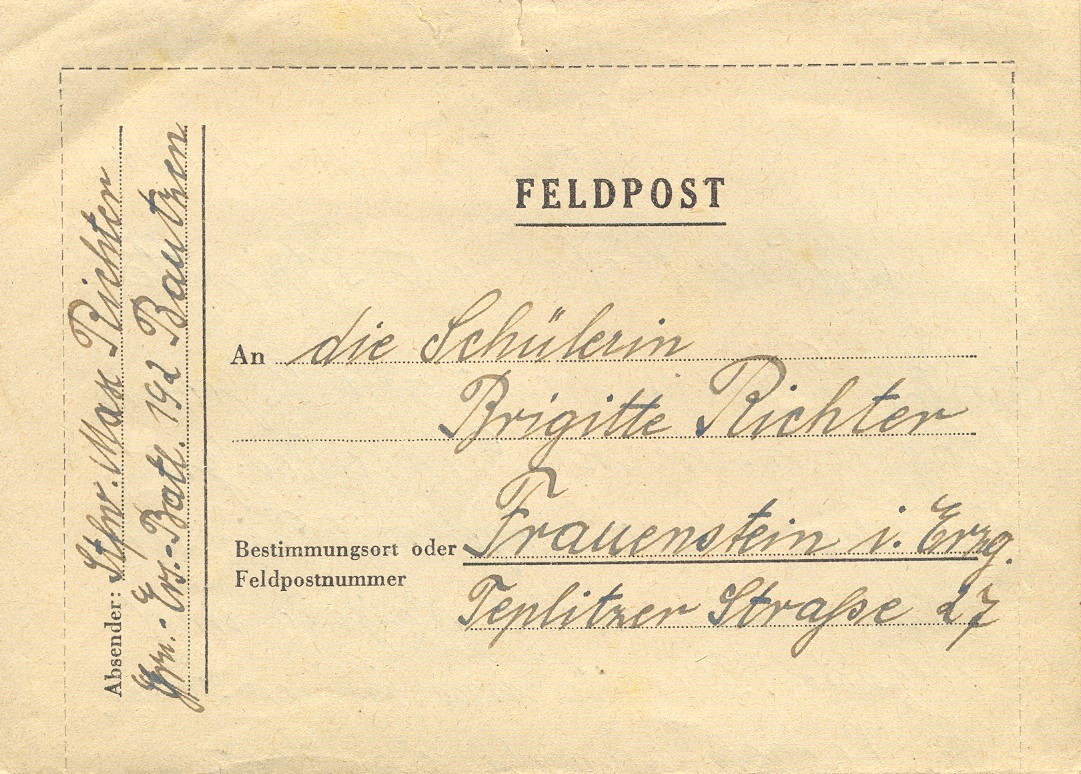 FELDPOST
An die Schülerin
Brigitte Richter
Bestimmungsort oder
Feldpostnummer
Frauenstein i. Erzg.
Teplitzer Straße 27
Absender: Stfw. Max Richter
Gren.-Ers.-Batl. 192 Bautzen